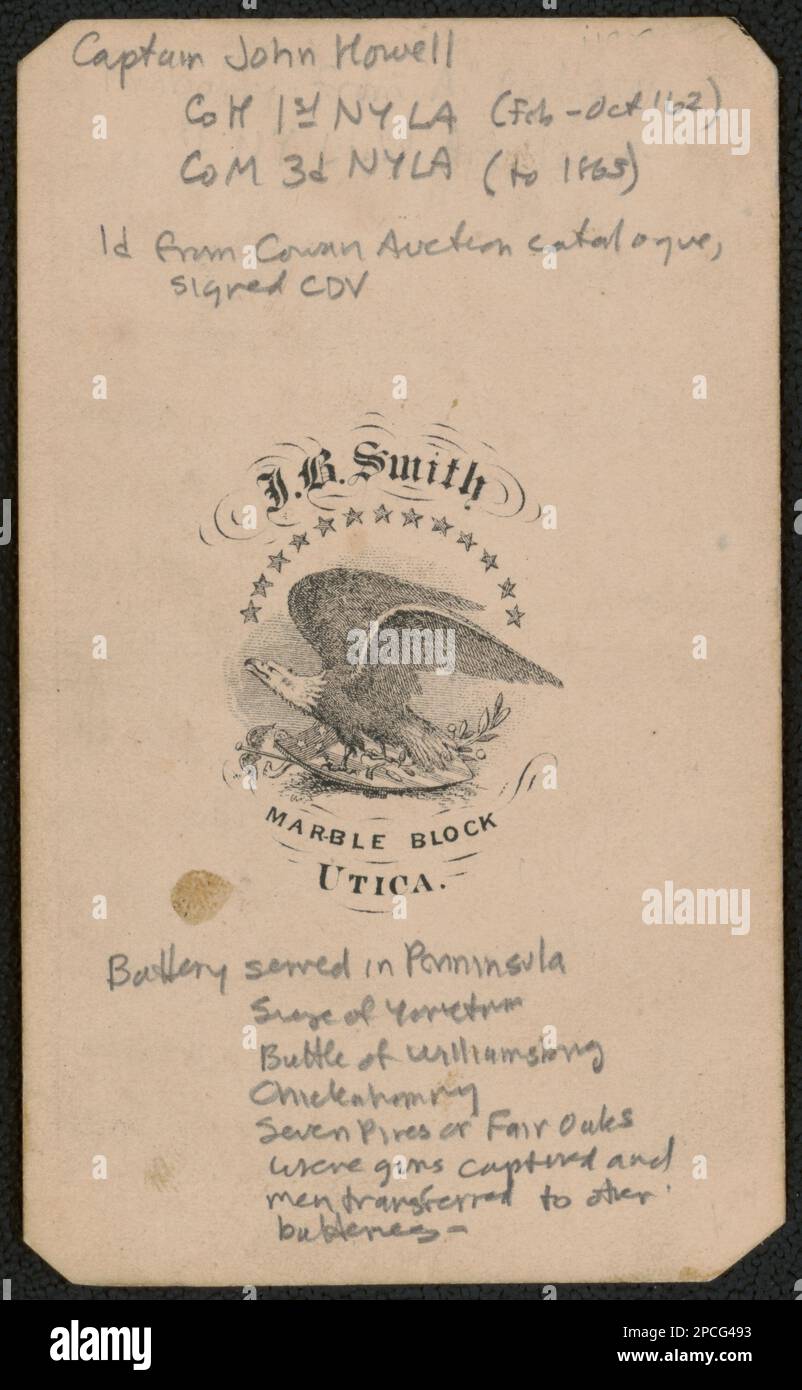 Captain John Howell
Co H 1st NYLA (Feb - Oct 1862)
Co M 3d NYLA (to 1865)
Id from Cowan Auction catalogue,
signed CDV
J.B. Smith
alamy
MARBLE BLOCK
UTICA.
Battery served in Penninsula
Siege of Yorktown
Battle of Williamsburg
Chickahominy
Seven Pines or Fair Oaks
where guns captured and
men transferred to other
batteries -
alamy
Image ID: 2PCG493
www.alamy.com